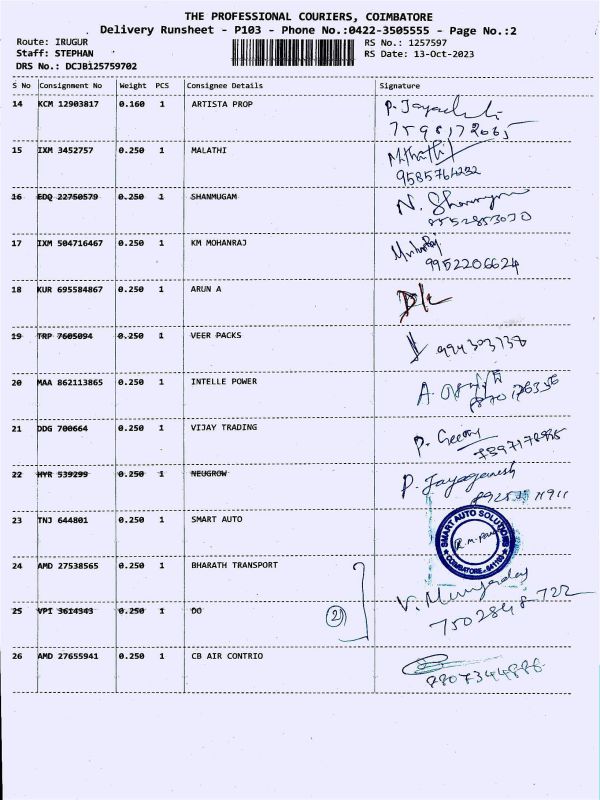 THE PROFESSIONAL COURIERS, COIMBATORE
Delivery Runsheet - P103 - Phone No.:0422-3505555 - Page No.:2
Route: IRUGUR
RS No.: 1257597
Staff: STEPHAN
RS Date: 13-Oct-2023
DRS No.: DCJB125759702
S No Consignment No Weight PCS Consignee Details Signature
14 KCM 12903817 0.160 1 ARTISTA PROP
15 IXM 3452757 0.250 1 MALATHI
9585764232
16 EDQ 22750579 0.250 1 SHANMUGAM
17 IXM 504716467 0.250 1 KM MOHANRAJ
9952206624
18 KUR 695584867 0.250 1 ARUN A
D/L
19 TRP 7605094 0.250 1 VEER PACKS
20 MAA 862113865 0.250 1 INTELLE POWER
21 DDG 700664 0.250 1 VIJAY TRADING
22 HYR 539299 0.250 1 NEUGROW
P. Jayaganesh
23 TNJ 644801 0.250 1 SMART AUTO
SMART AUTO SOLUTIONS
COIMBATORE
24 AMD 27538565 0.250 1 BHARATH TRANSPORT
25 VPI 3614343 0.250 1 DO
2
7502848722
26 AMD 27655941 0.250 1 CB AIR CONTRIO
8807344886